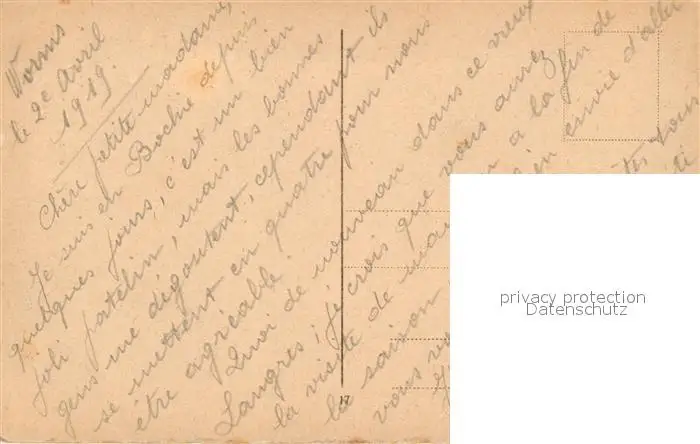 Worms
le 2e Avril
1919.
Chère petite madame,
Je suis en Bochie depuis
quelques jours, c'est un bien
joli patelin, mais les bonnes
gens me dégoutent, cependant ils
se mettent en quatre pour nous
être agréable.
Quoi de nouveau dans ce vieux
Langres, je crois que vous aurez
la visite de ma à la fin de
la saison en envie d'aller
vous
17
privacy protection
Datenschutz